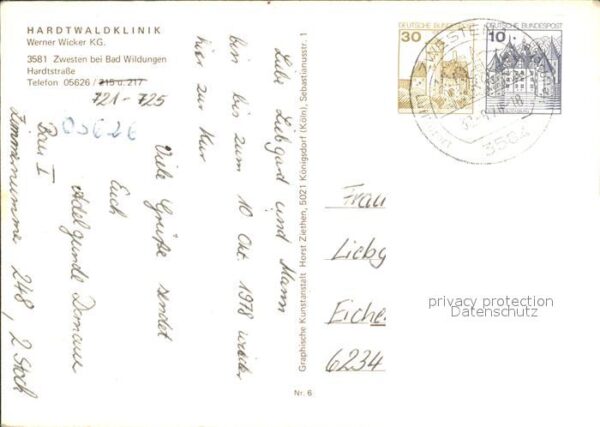 HARDTWALDKLINIK
Werner Wicker KG.
3581 Zwesten bei Bad Wildungen
Hardtstraße
Telefon 05626 / 215 u. 217
721-725
05626
Liebe Liebgard und Mann
bin bis zum 10 Okt. 1978 wieder
hier zur Kur
Viele Grüße sendet
Euch
Adelgunde
Bau I
Zimmernummer 248, 2 Stock
Graphische Kunstanstalt Horst Ziethen, 5021 Königsdorf (Köln), Sebastianusstr. 1
Nr. 6
DEUTSCHE BUNDESPOST
30
DEUTSCHE BUNDESPOST
10
3584
Frau
Liebg
Eiche
6234
privacy protection
Datenschutz